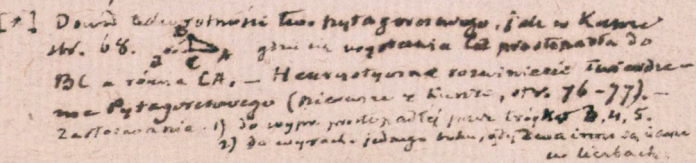 [*] Dowód odwrotności Tw. Pytagorasowego, jak w Kursie
str. 68. B D C A gdzie się wystawia też prostopadła do
BC a równa CA. – Heurystyczne rozwinięcie twierdze-
nia Pytagorasowego (pierwsze z kursu, str. 76-77). –
Zastosowania 1) do wypr. prostopadłej przez trójkąt 3, 4, 5.
2) do wyrach. jednego boku, gdy dwa inne są dane
w liczbach.